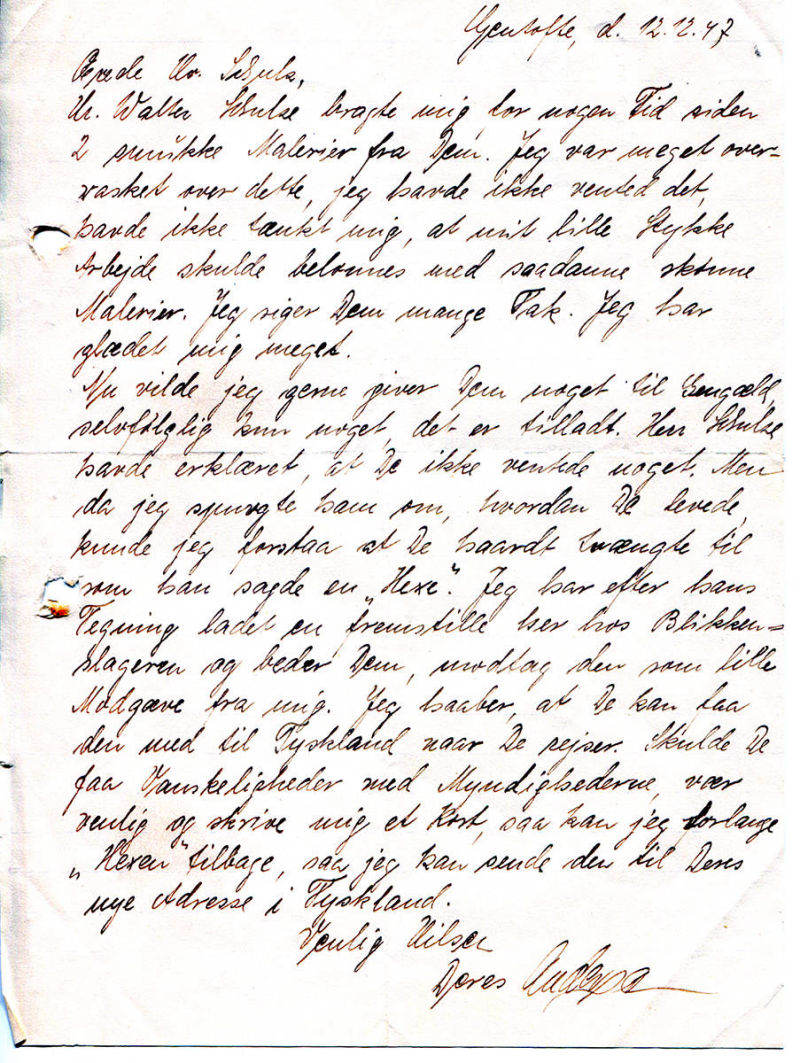 Gentofte, d. 12.12.47
Ærede Hr. Schulz,
Hr. Walter Schulse bragte mig for nogen Tid siden
2 smukke Malerier fra Dem. Jeg var meget over-
rasket over dette, jeg havde ikke vented det,
havde ikke tænkt mig, at mit lille Stykke
Arbejde skulde belønnes med saadanne skønne
Malerier. Jeg siger Dem mange Tak. Jeg har
glædet mig meget.
Nu vilde jeg gerne giver Dem noget til Gengæld,
selvfölgelig kun noget, det er tilladt. Herr Schulse
havde erklæret, at De ikke ventede noget. Men
da jeg spurgte ham om, hvordan De levede,
kunde jeg forstaa at De haardt trængte til
som han sagde en „Hexe". Jeg har efter hans
Tegning ladet en fremstille her hos Blikken-
slageren og beder Dem, modtag den som lille
Modgave fra mig. Jeg haaber, at De kan faa
den med til Tyskland naar De rejser. Skulde De
faa Vanskeligheder med Myndighederne, vær
venlig og skrive mig et Kort, saa kan jeg forlange
„Hexen" tilbage, saa jeg kan sende den til Deres
nye Adresse i Tyskland.
Venlig Hilsen
Deres